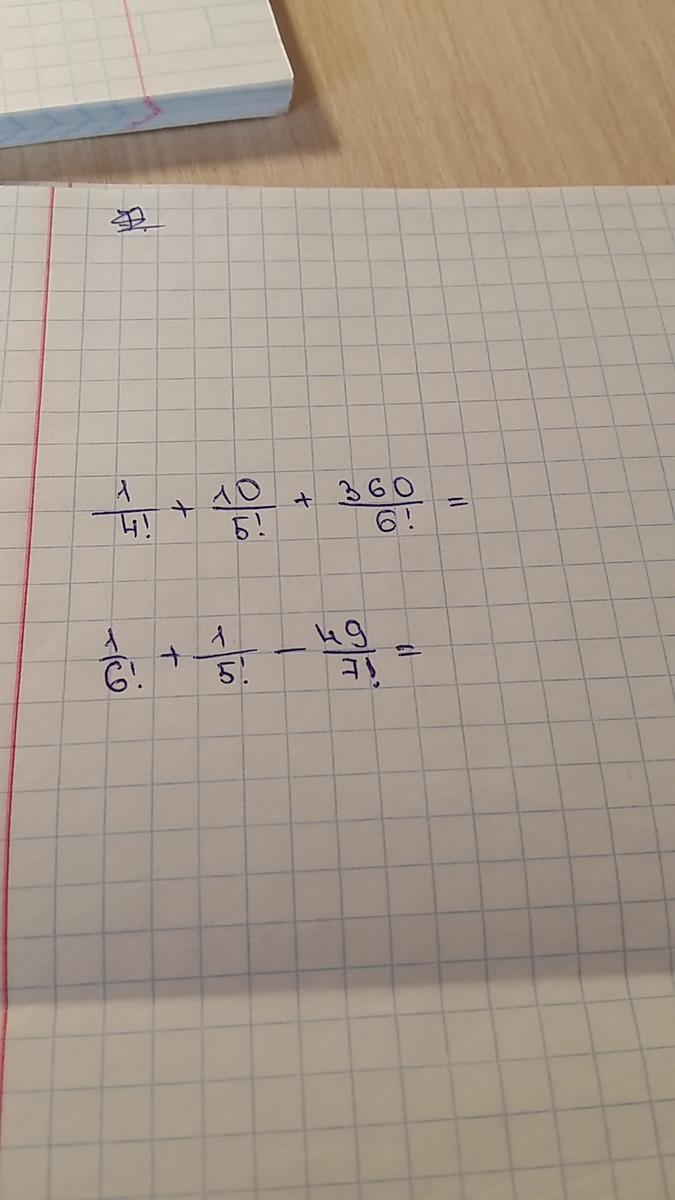 1/4! + 10/5! + 360/6! =
1/6! + 1/5! - 49/7! =